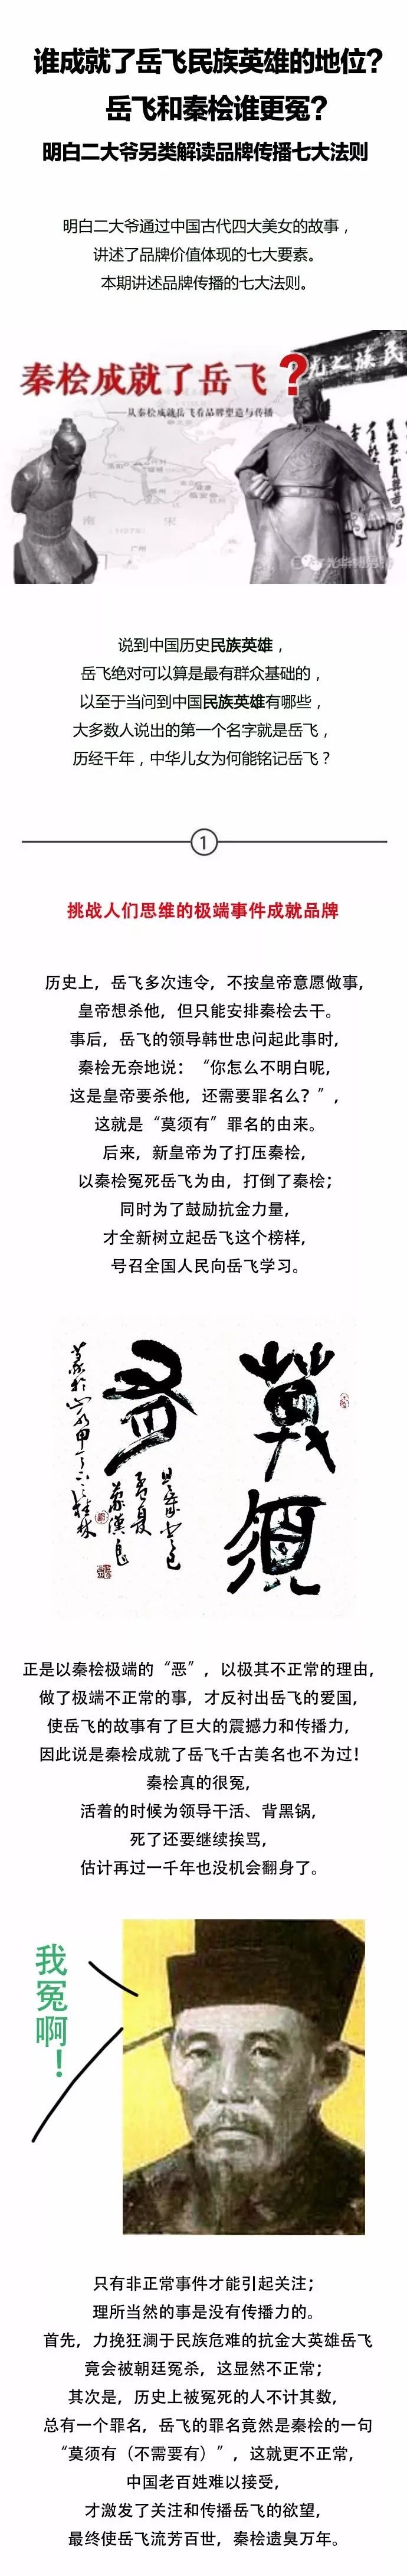 谁成就了岳飞民族英雄的地位？
岳飞和秦桧谁更冤？
明白二大爷另类解读品牌传播七大法则
明白二大爷通过中国古代四大美女的故事，
讲述了品牌价值体现的七大要素。
本期讲述品牌传播的七大法则。
秦桧成就了岳飞？
——从秦桧成就岳飞看品牌塑造与传播
说到中国历史民族英雄，
岳飞绝对可以算是最有群众基础的，
以至于当问到中国民族英雄有哪些，
大多数人说出的第一个名字就是岳飞，
历经千年，中华儿女为何能铭记岳飞？
1
挑战人们思维的极端事件成就品牌
历史上，岳飞多次违令，不按皇帝意愿做事，
皇帝想杀他，但只能安排秦桧去干。
事后，岳飞的领导韩世忠问起此事时，
秦桧无奈地说：“你怎么不明白呢，
这是皇帝要杀他，还需要罪名么？”，
这就是“莫须有”罪名的由来。
后来，新皇帝为了打压秦桧，
以秦桧冤死岳飞为由，打倒了秦桧；
同时为了鼓励抗金力量，
才全新树立起岳飞这个榜样，
号召全国人民向岳飞学习。
莫须
有
正是以秦桧极端的“恶”，以极其不正常的理由，
做了极端不正常的事，才反衬出岳飞的爱国，
使岳飞的故事有了巨大的震撼力和传播力，
因此说是秦桧成就了岳飞千古美名也不为过！
秦桧真的很冤，
活着的时候为领导干活、背黑锅，
死了还要继续挨骂，
估计再过一千年也没机会翻身了。
我冤啊！
只有非正常事件才能引起关注；
理所当然的事是没有传播力的。
首先，力挽狂澜于民族危难的抗金大英雄岳飞
竟会被朝廷冤杀，这显然不正常；
其次是，历史上被冤死的人不计其数，
总有一个罪名，岳飞的罪名竟然是秦桧的一句
“莫须有（不需要有）”，这就更不正常，
中国老百姓难以接受，
才激发了关注和传播岳飞的欲望，
最终使岳飞流芳百世，秦桧遗臭万年。